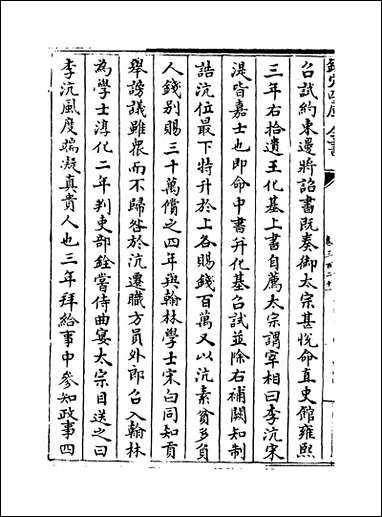 欽定四庫全書
卷三百二十
召試約束邊將詔書既奏御太宗甚悅命直史館雍熙
三年右拾遺王化基上書自薦太宗謂宰相曰李沆宋
湜皆嘉士也即命中書升化基召試並除右補闕知制
誥沆位最下特升於上各賜錢百萬又以沆素貧多負
人錢别賜三十萬償之四年與翰林學士宋白同知貢
舉謗議雖眾而不歸咎於沆遷職方員外郎召入翰林
為學士淳化二年判吏部銓嘗侍曲宴太宗目送之曰
李沆風度端凝真貴人也三年拜給事中參知政事四